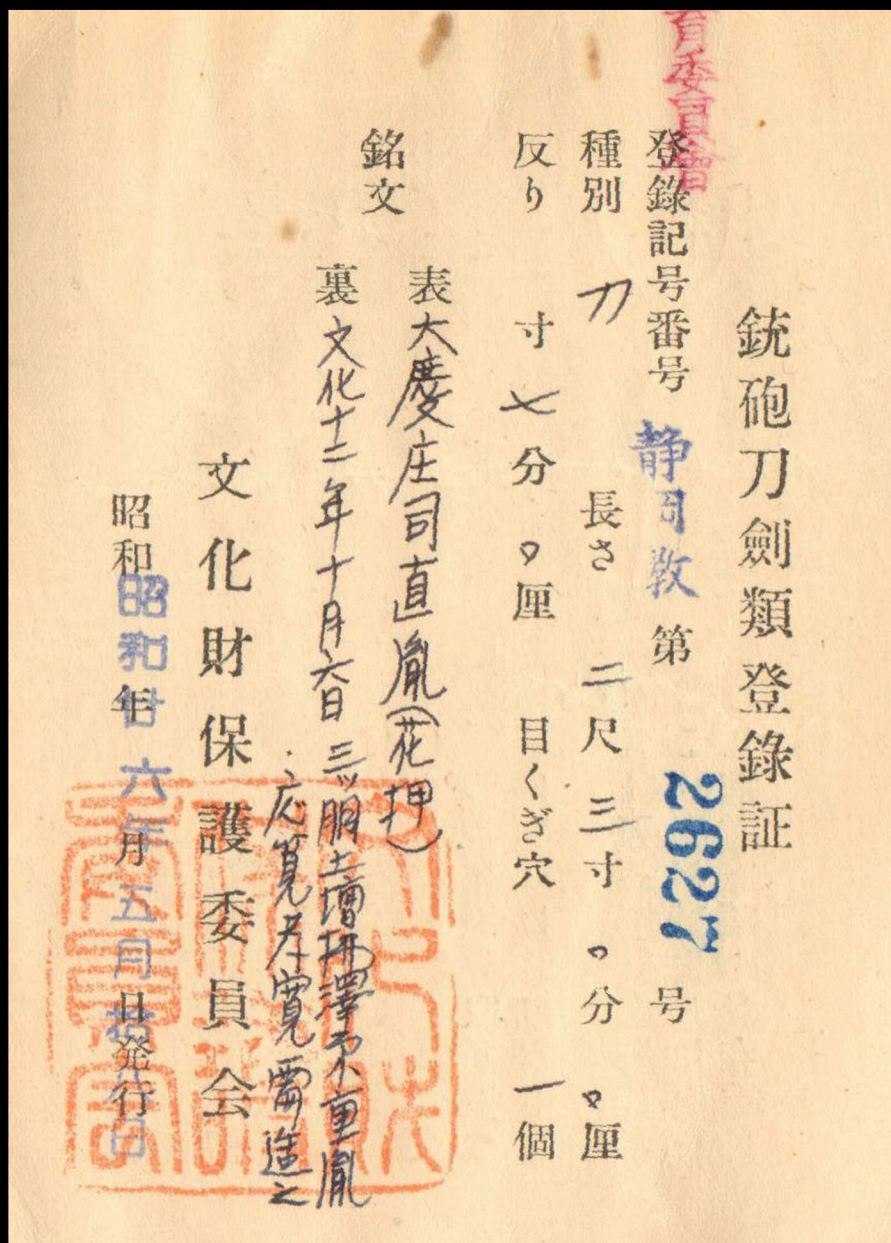 育委員會
銃砲刀劍類登錄証
登錄記号番号 静岡教 第 2627 号
種別 刀 長さ 二尺三寸〇分〇厘
反り 寸七分〇厘 目くぎ穴 一個
銘文
表 大慶庄司直胤(花押)
裏 文化十二年十月六日 三ッ胴土壇拂澤 重胤
応 需造之
文化財保護委員会
昭和 年 月 日発行
昭和廿六年五月 日